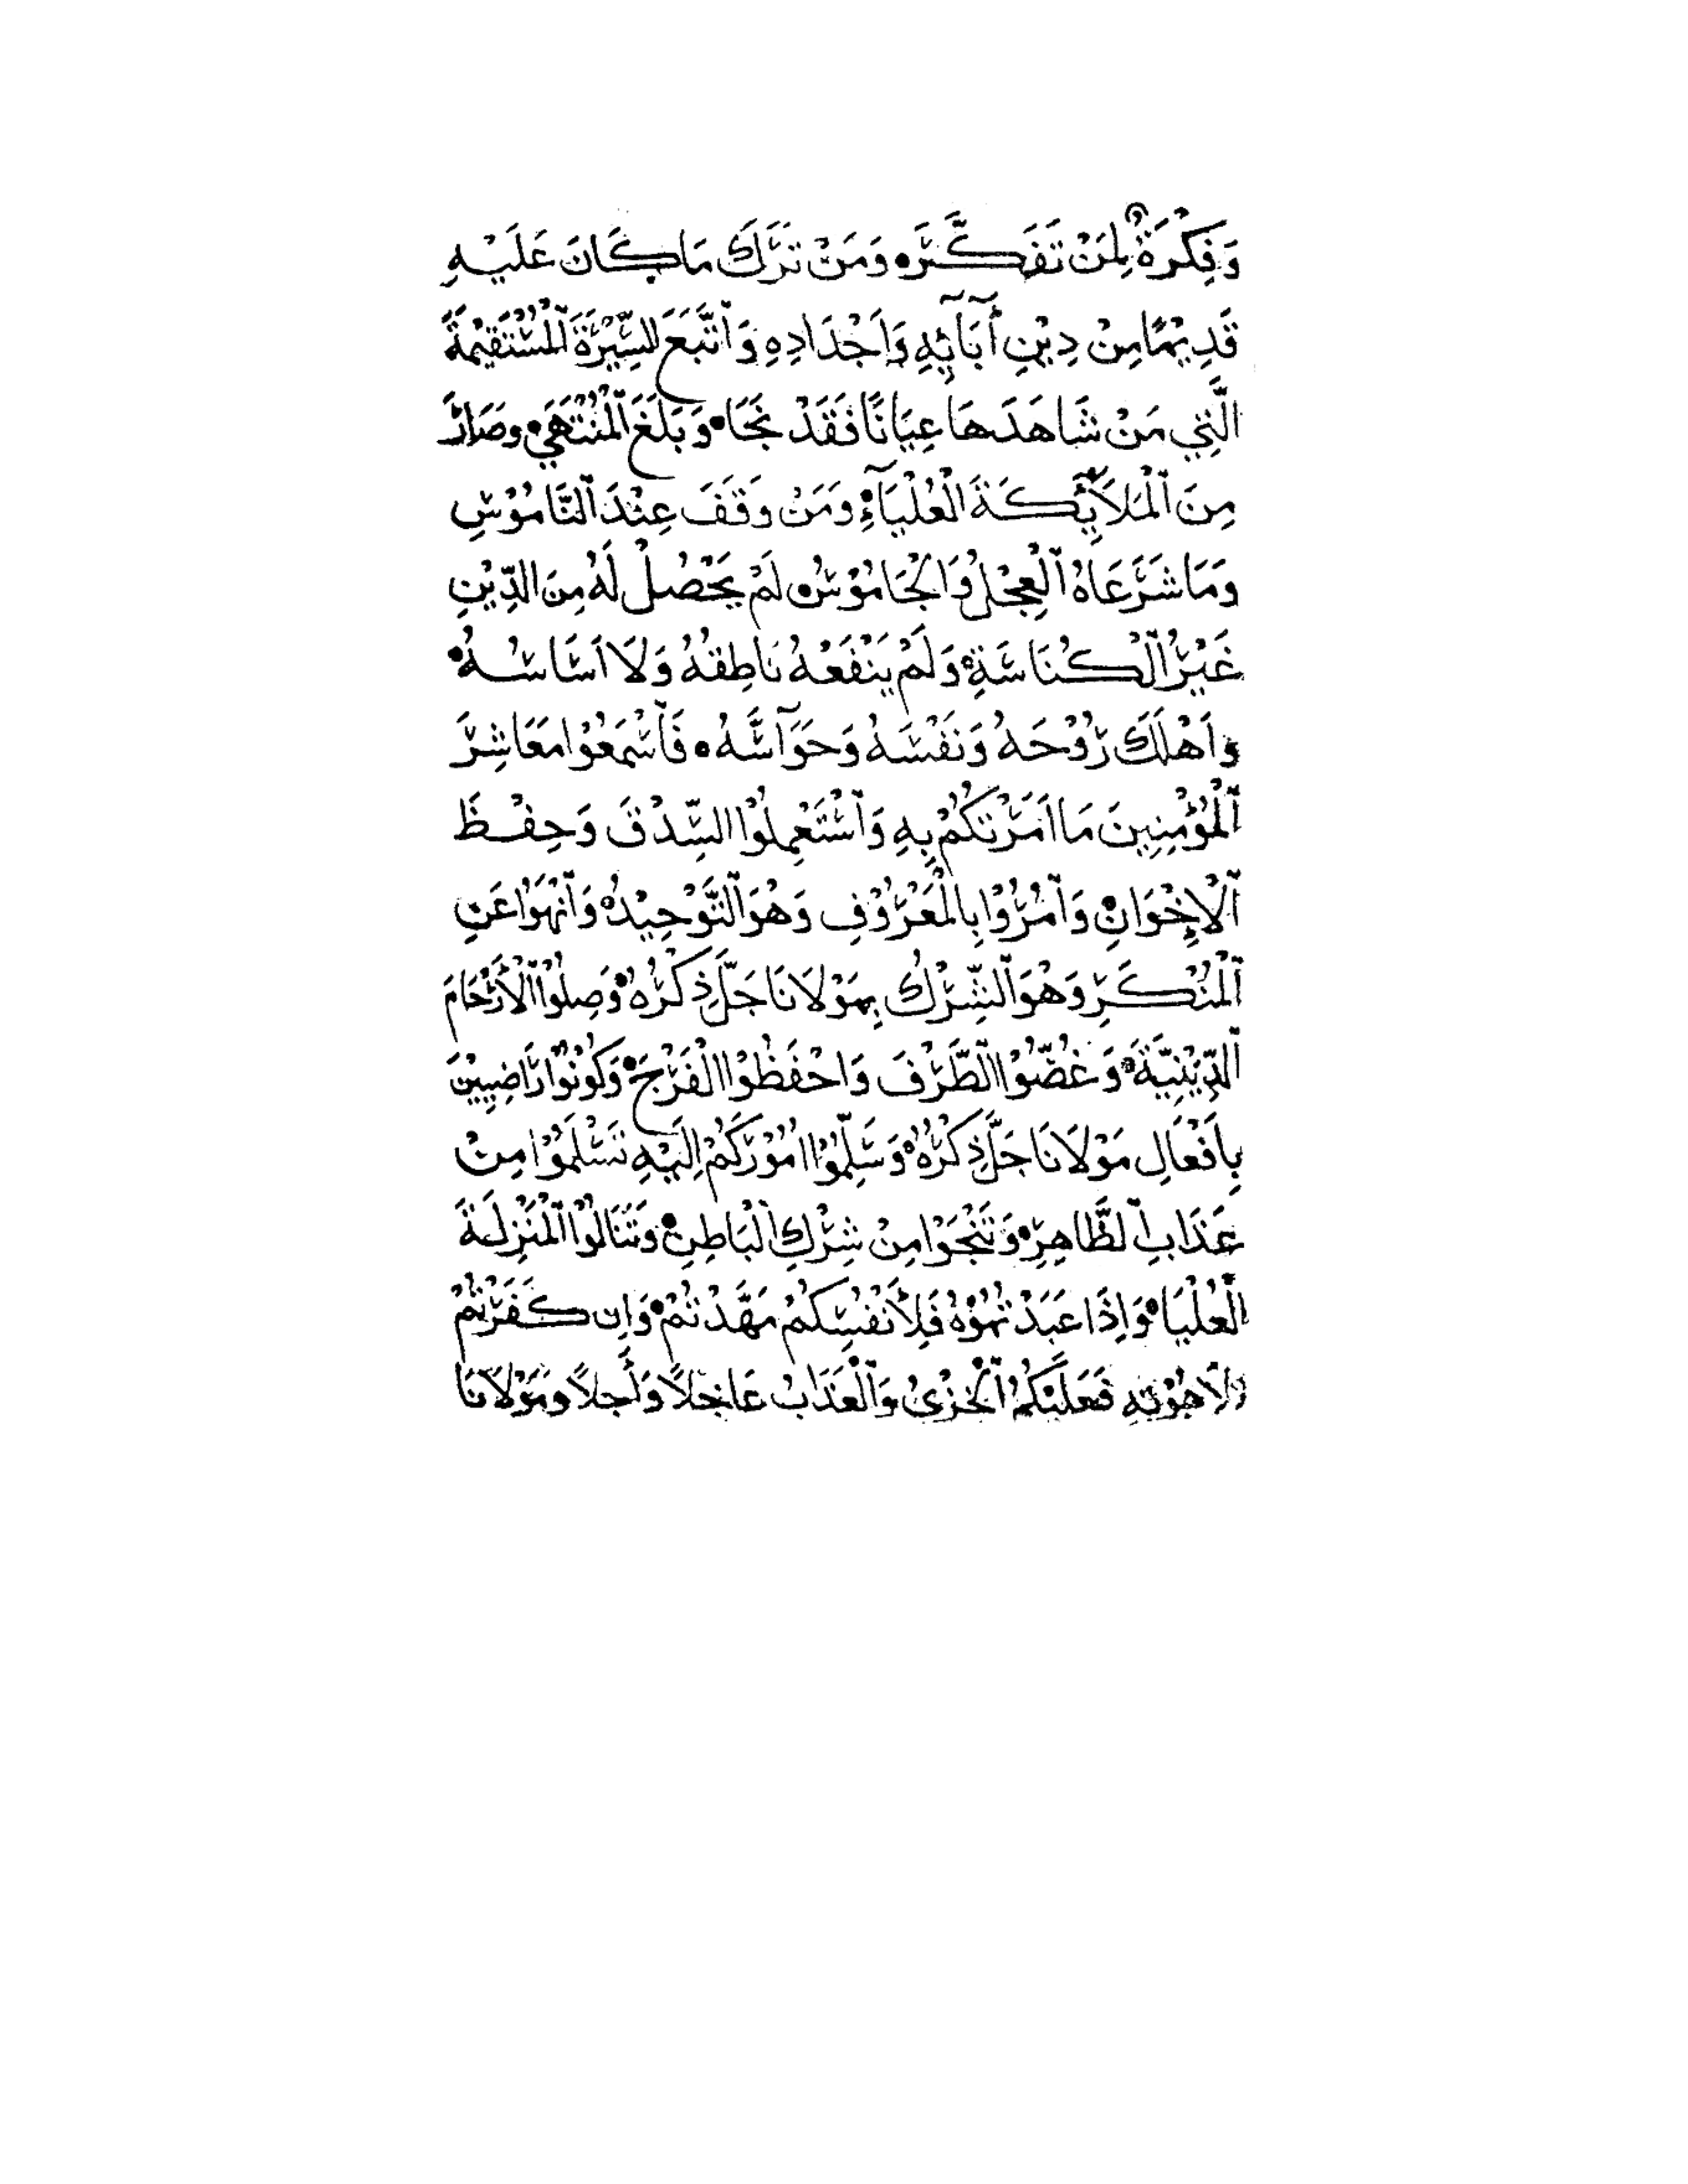 وَفِكْرَةٌ لِمَنْ تَفَكَّرَه وَمَنْ تَرَكَ مَا كَانَ عَلَيْهِ
قَدِيْمًا مِنْ دِيْنِ أَبَآئِهِ وَاَجْدَادِهِ وَاتَّبَعَ السِّيْرَةَ الْمُسْتَقِيْمَةَ
الَّتِي مَنْ شَاهَدَهَا عِيَانًا فَقَدْ نَجَا ۰ وَبَلَغَ الْمُنْتَهَى ۰ وصَارَ
مِنَ الْمَلَآئِكَةِ الْعُلْيَآءِ ۰ وَمَنْ وَقَفَ عِنْدَ النَّامُوْسِ
وَمَا شَرَّعَاهُ الْعِجْلُ وَالْجَامُوْسُ ۰ لَمْ يَحْصُلْ لَهُ مِنَ الدِّيْنِ
غَيْرُ الْكُنَاسَةِ ۰ وَلَمْ يَنْفَعْهُ نَاطِقُهُ وَلَا اَسَاسُهُ ۰
وَاَهْلَكَ رُوْحَهُ وَنَفْسَهُ وَحَوَآسَّهُ ۰ فَاسْمَعُوْا مَعَاشِرَ
الْمُؤْمِنِينَ مَا اَمَرْتُكُمْ بِهِ وَاسْتَعْمِلُوْا السِّدْقَ وَحِفْظَ
الْإِخْوَانِ ۰ وَآمُرُوْا بِالْمَعْرُوْفِ وَهْوَ التَّوْحِيْدُ ۰ وَانْهَوْا عَنِ
الْمُنْكَرِ وَهْوَ الشِّرْكُ بِمَوْلَانَا جَلَّ ذِكْرُهُ ۰ وَصِلُوْا الْأَرْحَامَ
الدِّيْنِيَّةَ ۰ وَغُضُّوْا الطَّرْفَ وَاحْفَظُوْا الْفَرْجَ ۰ وَكُوْنُوْا رَاضِيِيْنَ
بِاَفْعَالِ مَوْلَانَا جَلَّ ذِكْرُهُ ۰ وَسَلِّمُوْا اُمُوْرَكُمْ اِلَيْهِ تَسْلَمُوْا مِنْ
عَذَابِ الظَّاهِرِ ۰ وَتَنْجَوْا مِنْ شِرْكِ الْبَاطِنِ ۰ وَتَنَالُوْا الْمَنْزِلَةَ
الْعُلْيَا ۰ وَاِذَا عَبَدْتُمُوْهُ فَلِأَنْفُسِكُمْ مَهَّدْتُمْ ۰ وَاِن كَفَرْتُمْ
لَاهُوْتِهِ فَعَلَيْكُمُ الْخِزْىُ وَالْعَذَابُ عَاجِلاً وَأَجِلاً وَمَوْلَانَا